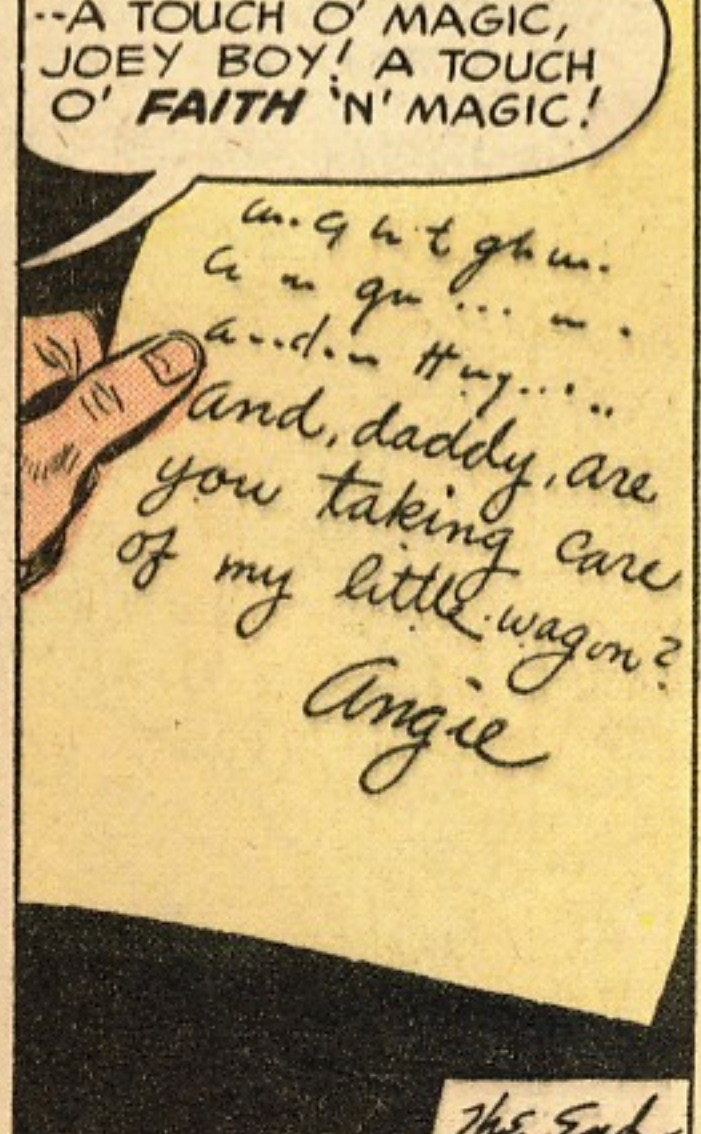 --A TOUCH O' MAGIC,
JOEY BOY! A TOUCH
O' FAITH 'N' MAGIC!
and, daddy, are
you taking care
of my little wagon?
Angie
The End